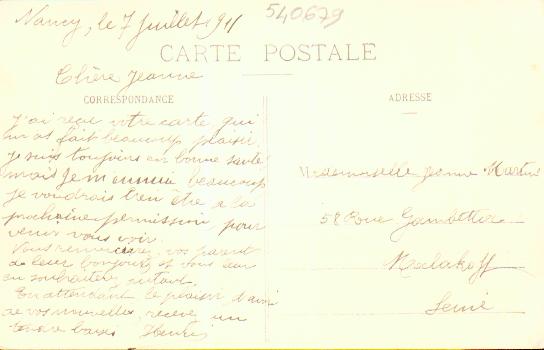 Nancy, le 7 Juillet 1911
540679
CARTE POSTALE
Chère Jeanne
CORRESPONDANCE
J'ai reçu votre carte qui
m'a fait beaucoup plaisir.
Je suis toujours en bonne santé
mais je m'ennuie beaucoup
je voudrais bien être a la
prochaine permission pour
venir vous voir.
Vous remercierez vos parent
de leur bonjour et vous leur
en souhaiterez autant.
En attendant le plaisir d'avoir
de vos nouvelles, recevez un
tendre baiser Henri
ADRESSE
Mademoiselle Jeanne Martin
58 Rue Gambetta
Malakoff
Seine